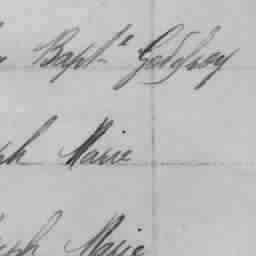 Bapt.e Godfrey
ph Marie
eph Marie